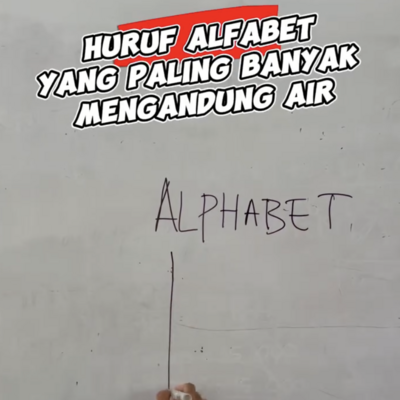 HURUF ALFABET
YANG PALING BANYAK
MENGANDUNG AIR
ALPHABET.